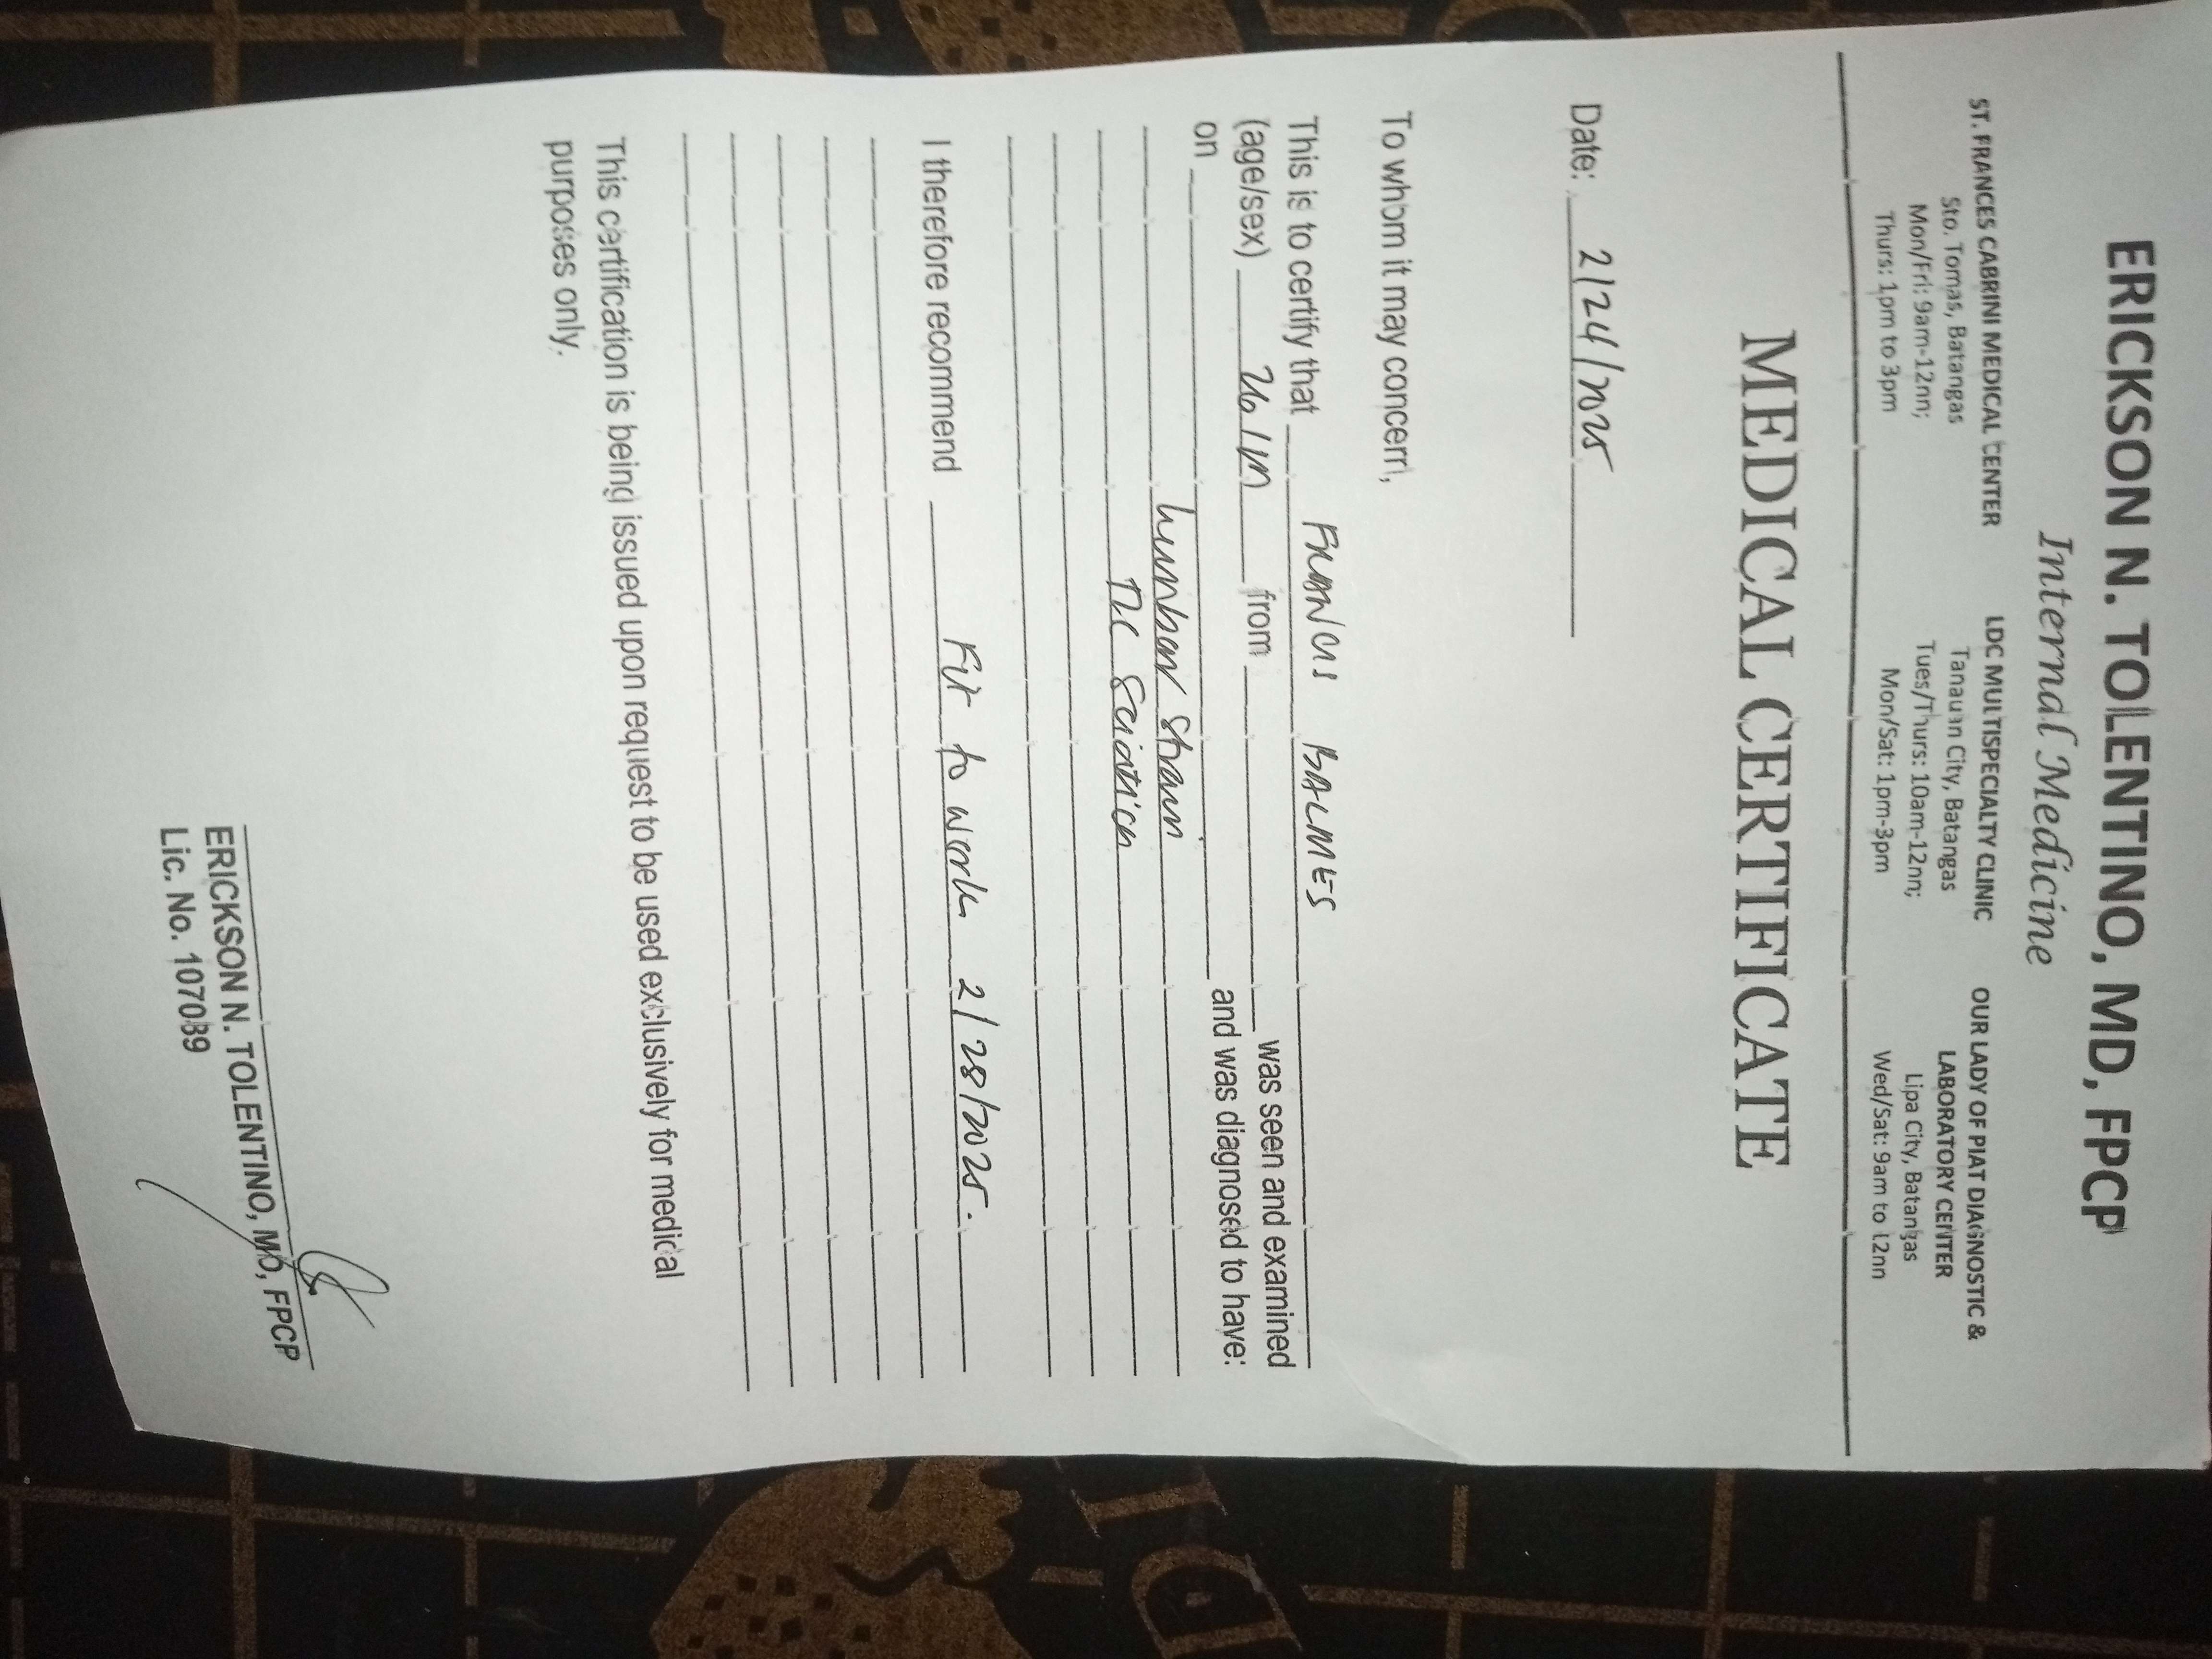 ERICKSON N. TOLENTINO, MD, FPCP
Internal Medicine
ST. FRANCES CABRINI MEDICAL CENTER
Sto. Tomas, Batangas
Mon/Fri: 9am-12nn;
Thurs: 1pm to 3pm
LDC MULTISPECIALTY CLINIC
Tanauan City, Batangas
Tues/Thurs: 10am-12nn;
Mon/Sat: 1pm-3pm
OUR LADY OF PIAT DIAGNOSTIC &
LABORATORY CENTER
Lipa City, Batangas
Wed/Sat: 9am to 12nn
MEDICAL CERTIFICATE
Date: 2/24/2025
To whom it may concern,
This is to certify that FRANCIS BALMES
(age/sex) 26/M from was seen and examined
on and was diagnosed to have:
Lumbar Strain
T/C Sciatica
I therefore recommend Fit to work 2/28/2025.
This certification is being issued upon request to be used exclusively for medical
purposes only.
ERICKSON N. TOLENTINO, MD, FPCP
Lic. No. 107089